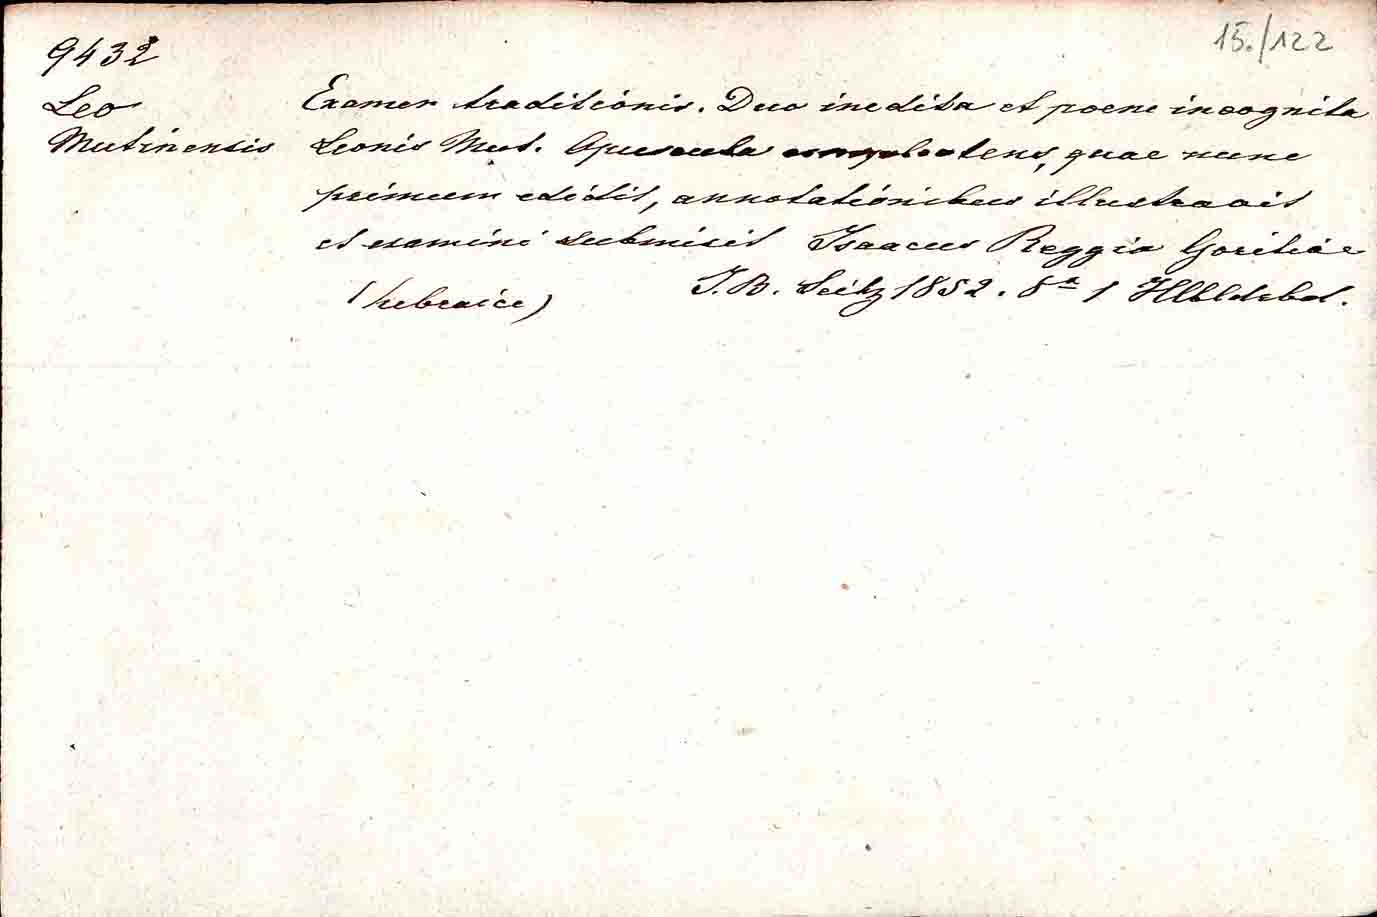 15./122
9432
Leo Examen traditionis. Duo inedita et poene incognita
Mutinensis Leonis Mut. Opuscula complectens, quae nunc
primum edidit, annotationibus illustravit
et examini submisit Isaacus Reggio Goritiae
(hebraice) J. B. Seitz 1852. 8° 1 Hlbldrbd.